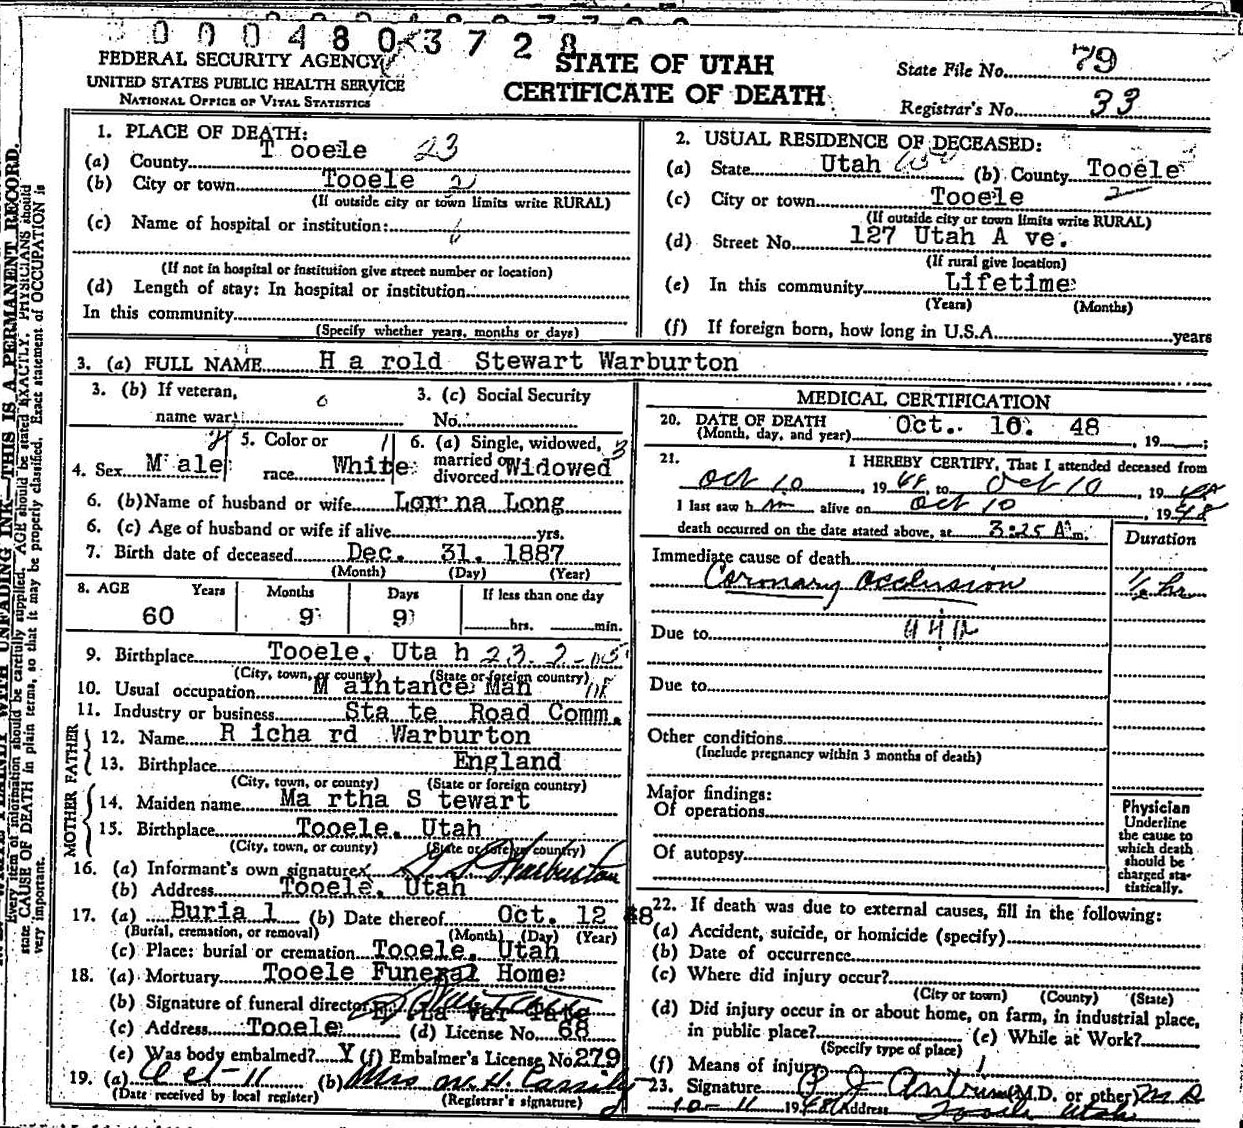 0000480 3728
FEDERAL SECURITY AGENCY
UNITED STATES PUBLIC HEALTH SERVICE
NATIONAL OFFICE OF VITAL STATISTICS
STATE OF UTAH
CERTIFICATE OF DEATH
State File No. 79
Registrar's No. 33
1. PLACE OF DEATH:
(a) County T ooele 23
(b) City or town Tooele 2
(If outside city or town limits write RURAL)
(c) Name of hospital or institution:
(If not in hospital or institution give street number or location)
(d) Length of stay: In hospital or institution
In this community
(Specify whether years, months or days)
2. USUAL RESIDENCE OF DECEASED:
(a) State Utah (b) County Tooele
(c) City or town Tooele 2
(If outside city or town limits write RURAL)
(d) Street No. 127 Utah A ve.
(If rural give location)
(e) In this community Lifetime
(Years) (Months)
(f) If foreign born, how long in U.S.A. years
3. (a) FULL NAME H a rold Stewart Warburton
3. (b) If veteran, 0 3. (c) Social Security
name war No.
4. Sex M ale 5. Color or race White 6. (a) Single, widowed, married or divorced Widowed 3
6. (b) Name of husband or wife Lorna Long
6. (c) Age of husband or wife if alive yrs.
7. Birth date of deceased Dec. 31, 1887
(Month) (Day) (Year)
8. AGE Years Months Days If less than one day
60 9 9 hrs. min.
9. Birthplace Tooele, Uta h 23.2-
(City, town, or county) (State or foreign country)
10. Usual occupation M aintance Man
11. Industry or business Sta te Road Comm.
FATHER
12. Name R icha rd Warburton
13. Birthplace England
(City, town, or county) (State or foreign country)
MOTHER
14. Maiden name Ma rtha S tewart
15. Birthplace Tooele, Utah
(City, town, or county) (State or foreign country)
16. (a) Informant's own signature x Warburton
(b) Address Tooele, Utah
17. (a) Buria l (b) Date thereof Oct. 12 48
(Burial, cremation, or removal) (Month) (Day) (Year)
(c) Place: burial or cremation Tooele, Utah
18. (a) Mortuary Tooele Funeral Home
(b) Signature of funeral director Tate
(c) Address Tooele (d) License No. 68
(e) Was body embalmed? Y (f) Embalmer's License No 279
19. (a) Oct-11 (b) Mrs W. H. Cassity
(Date received by local register) (Registrar's signature)
MEDICAL CERTIFICATION
20. DATE OF DEATH Oct. 10. 48
(Month, day, and year) , 19 ;
21. I HEREBY CERTIFY, That I attended deceased from
Oct 10, 1948, to Oct 10, 1948
I last saw him alive on Oct 10, 1948
death occurred on the date stated above, at 3:25 A m. Duration
Immediate cause of death
Coronary occlusion 1/2 hr
Due to
Due to
Other conditions
(Include pregnancy within 3 months of death)
Major findings:
Of operations
Of autopsy
Physician
Underline
the cause to
which death
should be
charged sta-
tistically.
22. If death was due to external causes, fill in the following:
(a) Accident, suicide, or homicide (specify)
(b) Date of occurrence
(c) Where did injury occur?
(City or town) (County) (State)
(d) Did injury occur in or about home, on farm, in industrial place,
in public place? (e) While at Work?
(Specify type of place)
(f) Means of injury
23. Signature P J Antrim (M.D. or other) M D
10-11 1948 Address Tooele Utah
INK—THIS IS A PERMANENT RECORD.
AGE should be stated EXACTLY. PHYSICIANS should
state CAUSE OF DEATH in plain terms, so that it may be properly classified. Exact statement of OCCUPATION is
very important.